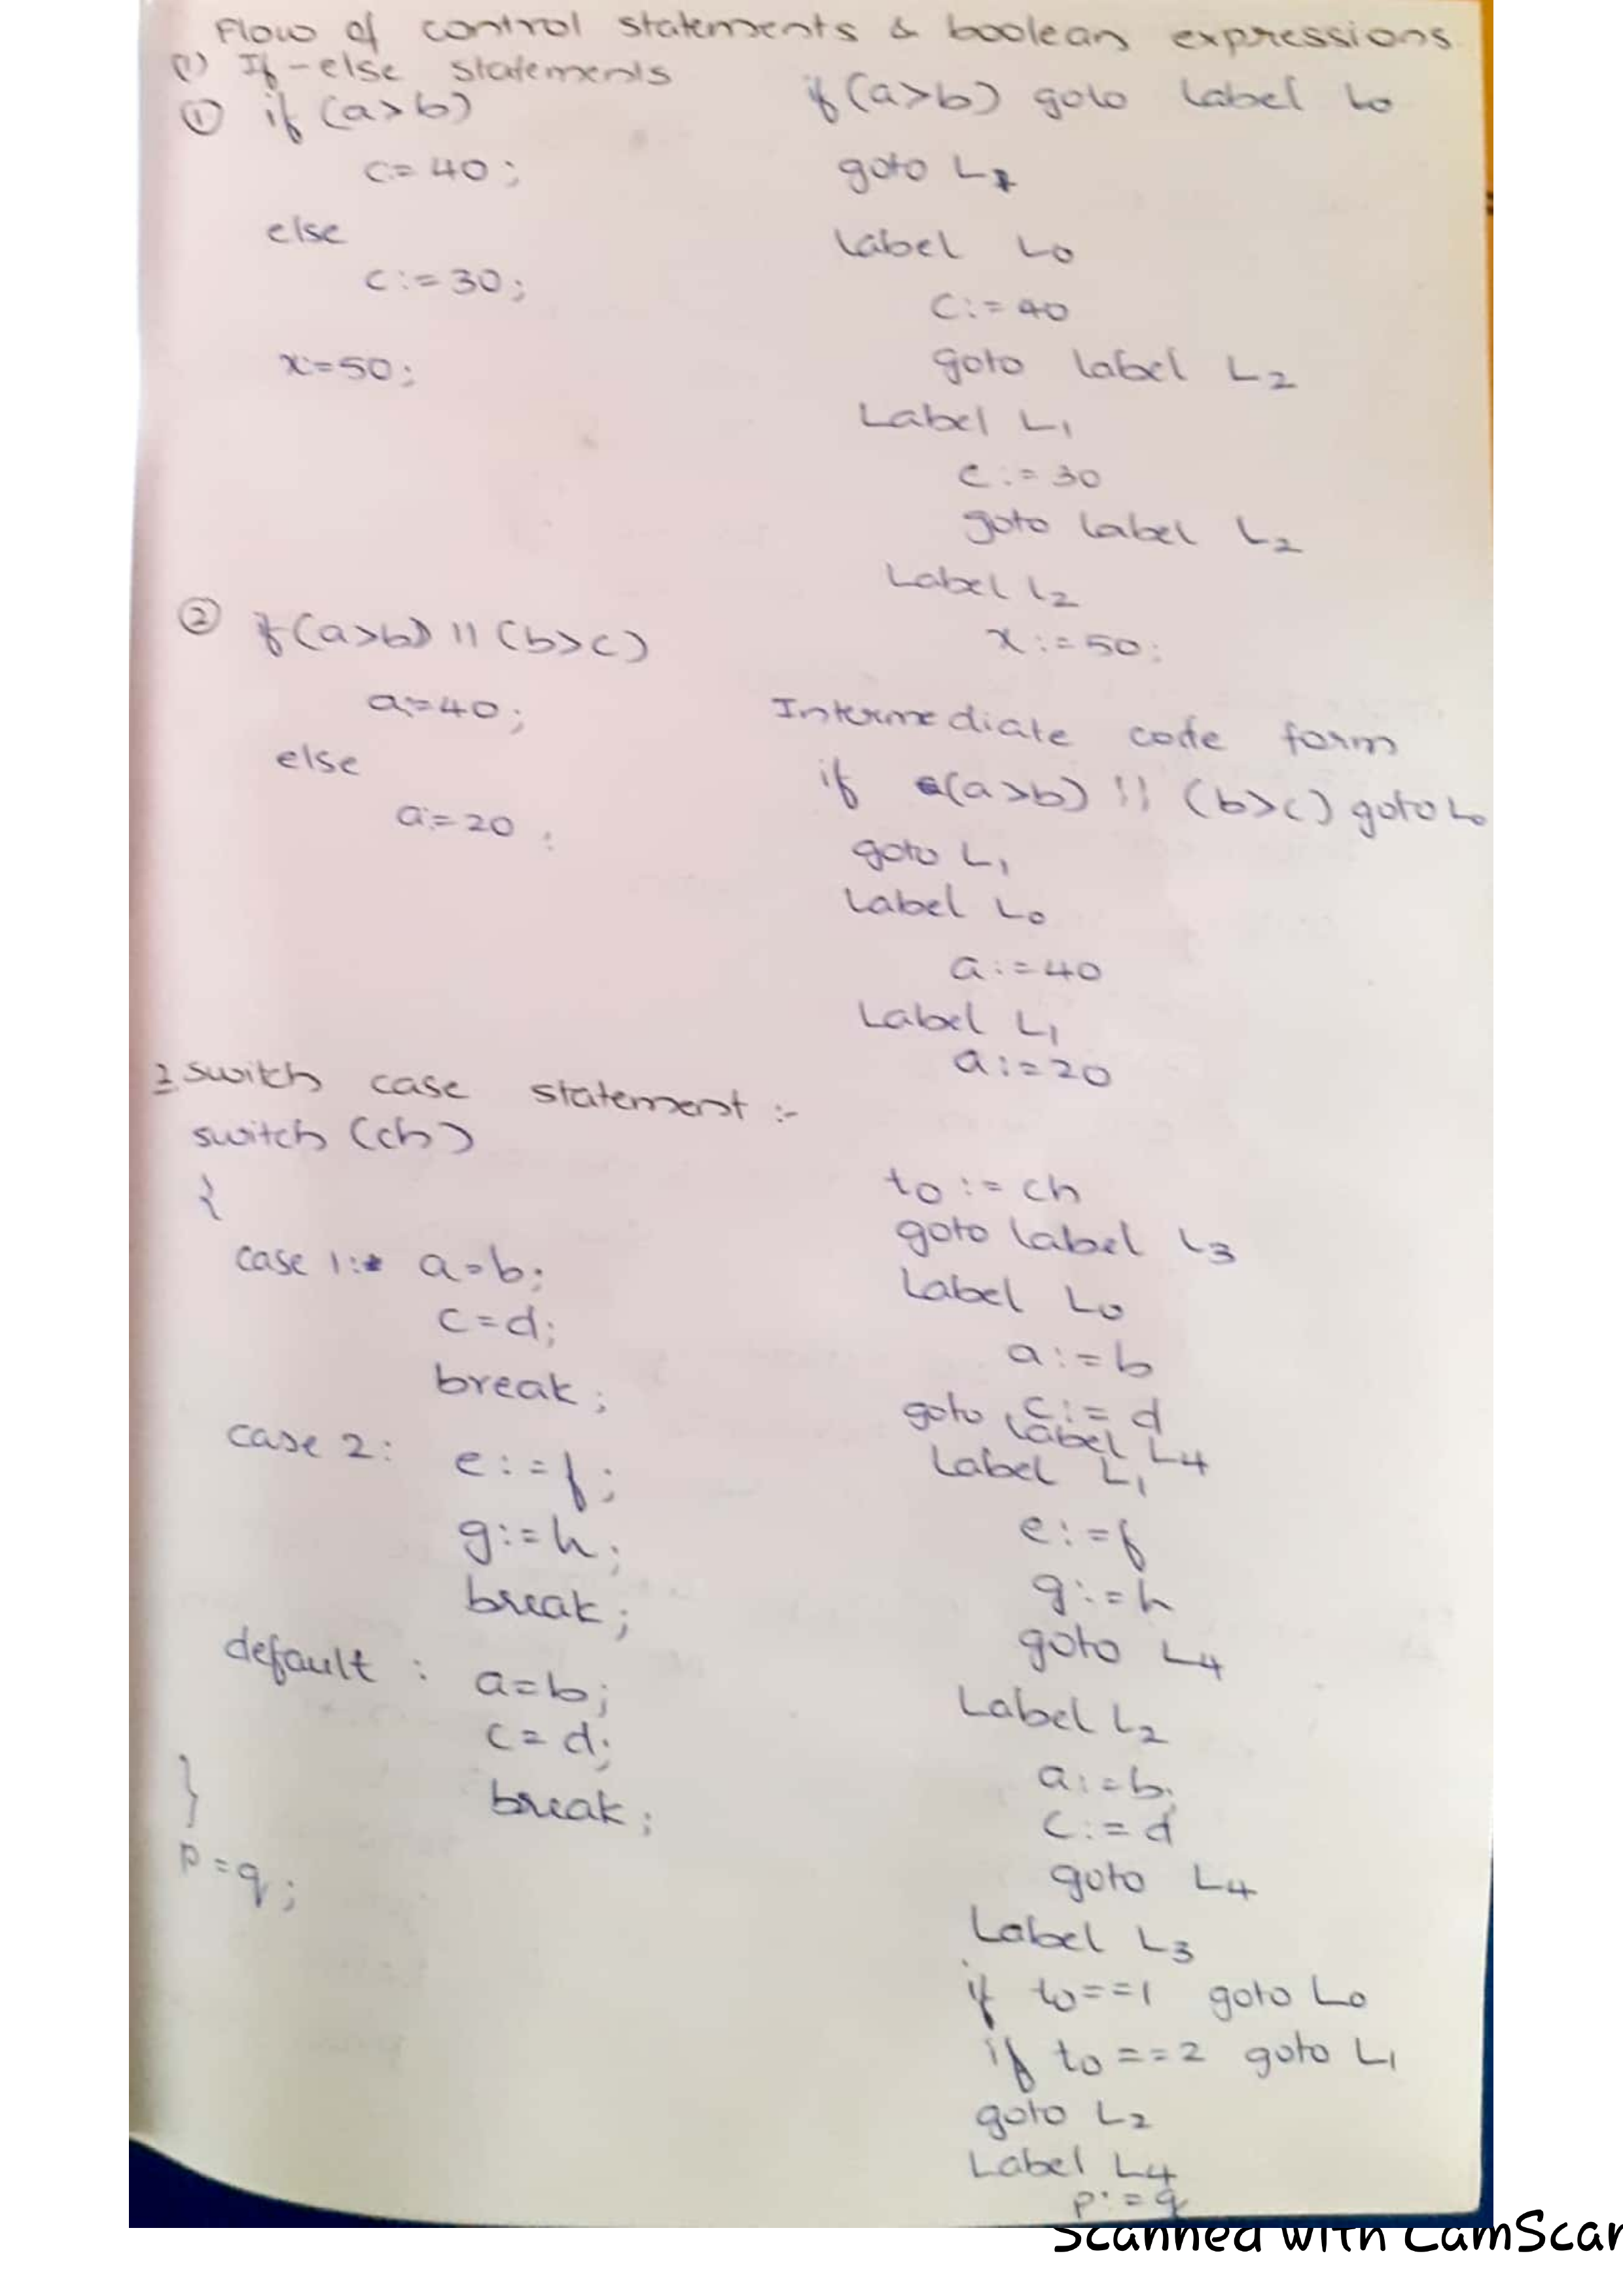 Flow of control statements & boolean expressions
(1) If-else statements
① if (a>b)
c= 40;
else
c:=30;
x:=50;
if (a>b) goto Label L0
goto L1
Label L0
C:= 40
goto label L2
Label L1
c:= 30
goto label L2
Label L2
x:=50;
② if(a>b) || (b>c)
a:=40;
else
a:=20;
Intermediate code form
if (a>b) || (b>c) goto L0
goto L1
Label L0
a:=40
Label L1
a:=20
2 switch case statement :-
switch (ch)
{
case 1: a=b;
c=d;
break;
case 2: e:=f;
g:=h;
break;
default : a=b;
c=d;
break;
}
P=q;
t0:= ch
goto label L3
Label L0
a:=b
c:= d
goto label L4
Label L1
e:=f
g:=h
goto L4
Label L2
a:=b;
c:=d
goto L4
Label L3
if t0==1 goto L0
if t0==2 goto L1
goto L2
Label L4
p:=q
Scanned with CamScan